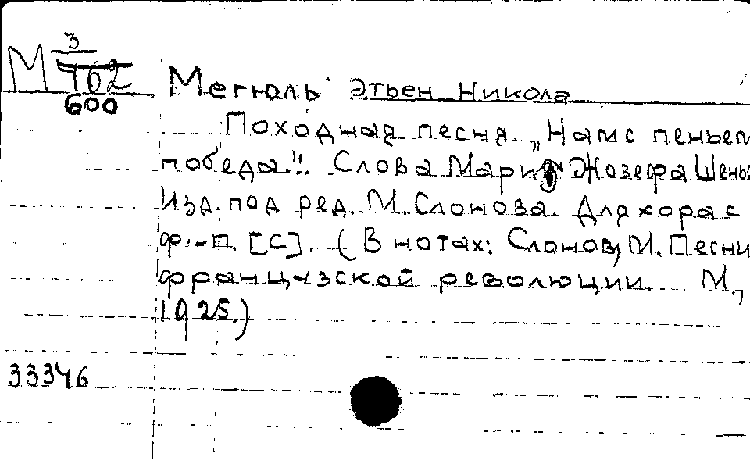 М 3
102
600
Мегюль Этьен Никола
Походная песня. „Нам с пеньем
победа". Слова Мари Жозефа Шенье
Изд. под ред. М. Слонова. Для хора с
ф.-п. [С]. (В нотах: Слонов, М. Песни
французской революции. М.,
1925.)
33346